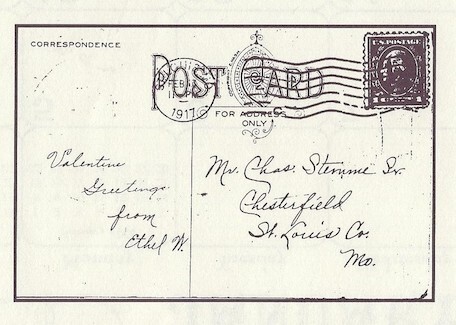 CORRESPONDENCE
POST CARD
U.S. POSTAGE
FEB
1917
FOR ADDRESS
ONLY
Valentine
Greetings
from
Ethel W.
Mr. Chas. Stemme Sr.
Chesterfield
St. Louis Co.
Mo.